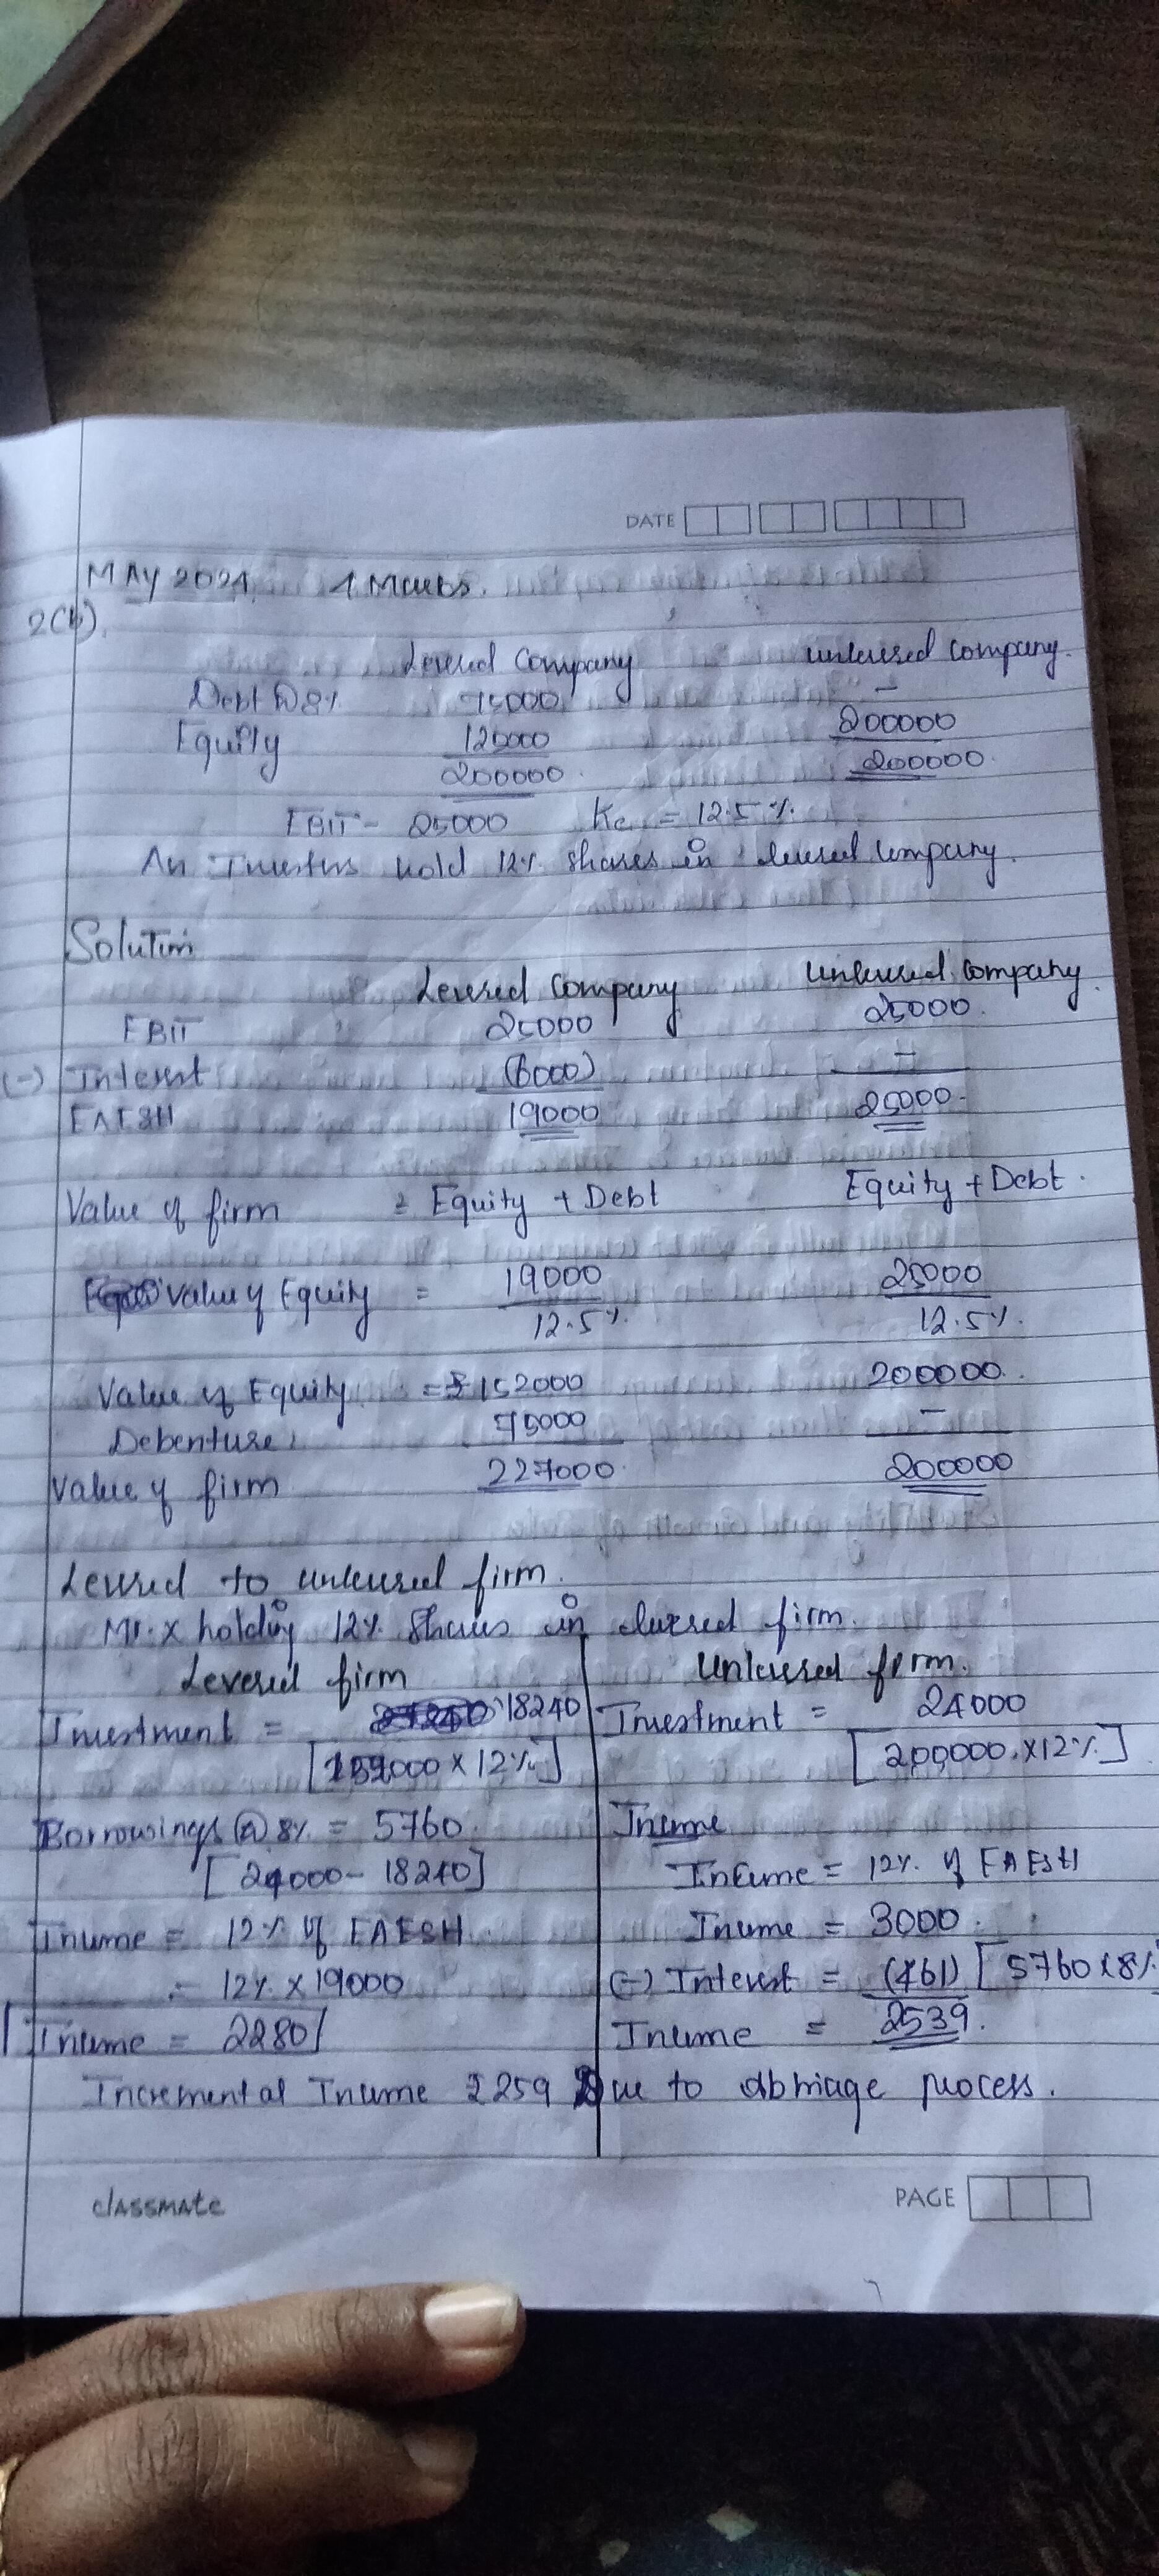 DATE
MAY 2024 4 Marks.
2(b).
Levered Company unlevered Company.
Debt @ 8% 75000 -
Equity 125000 200000
200000 200000
EBIT - 25000 Ke = 12.5%
An Investors hold 12% shares in levered Company.
Solution
Levered Company Unlevered Company.
EBIT 25000 25000
(-) Interest (6000) -
EAESH 19000 25000
Value of firm = Equity + Debt Equity + Debt.
Value of Equity = 19000 25000
12.5% 12.5%
Value of Equity = 152000 200000
Debenture 75000 -
Value of firm 227000 200000
Levered to unlevered firm.
Mr. X holding 12% Shares in levered firm.
Levered firm Unlevered firm.
Investment = 18240 Investment = 24000
[152000 x 12%] [200000 x 12%]
Borrowings @ 8% = 5760 Income
[24000 - 18240] Income = 12% of EAESH
Income = 12% of EAESH Income = 3000
= 12% x 19000 (-) Interest = (461) [5760 x 8%
Income = 2280 Income = 2539
Incremental Income 259 Due to abriage process.
classmate PAGE